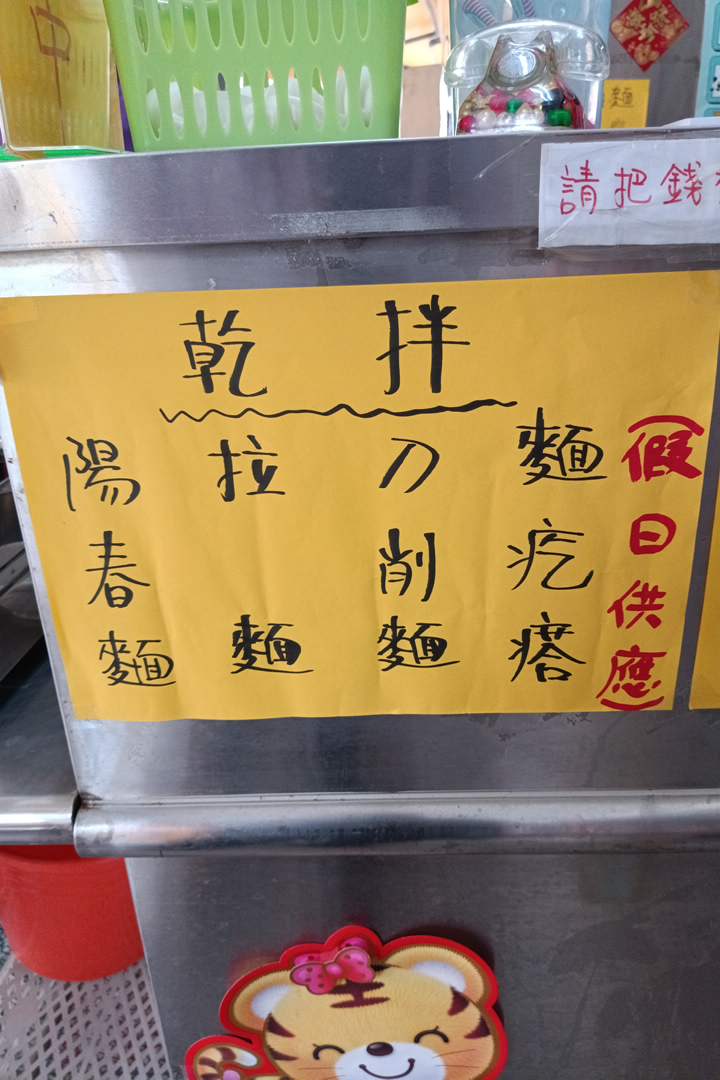 中
麵
請把錢
乾拌
陽春麵
拉麵
刀削麵
麵疙瘩
(假日供應)